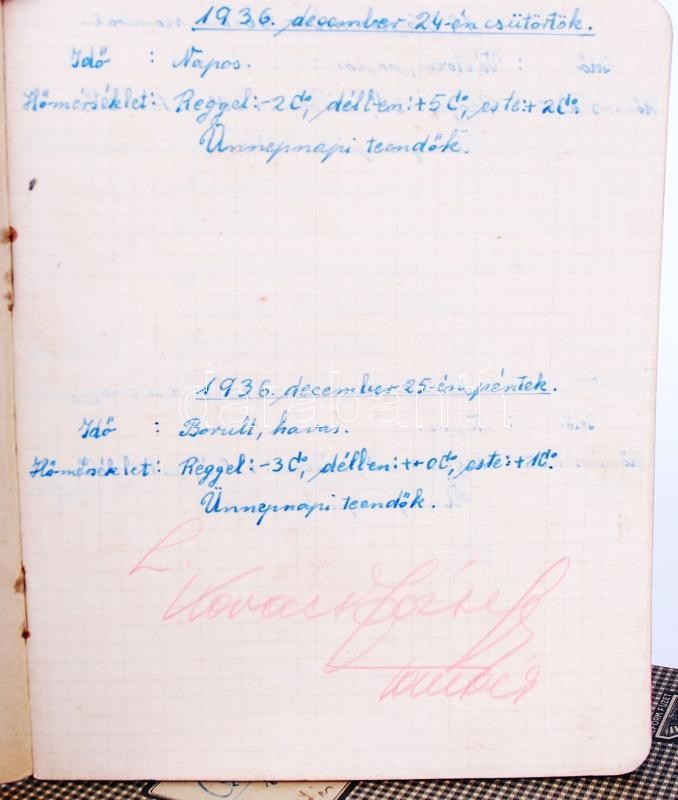 1936. december 24-én csütörtök.
Idő : Napos.
Hőmérséklet: Reggel: -2 C°, délben: +5 C°, este: +2 C°
Ünnepnapi teendők.
1936. december 25-én péntek.
databanth
Idő : Borult, havas.
Hőmérséklet: Reggel: -3 C°, délben: ++0 C°, este: +1 C°.
Ünnepnapi teendők.
L.
Kovács József
FÜZET